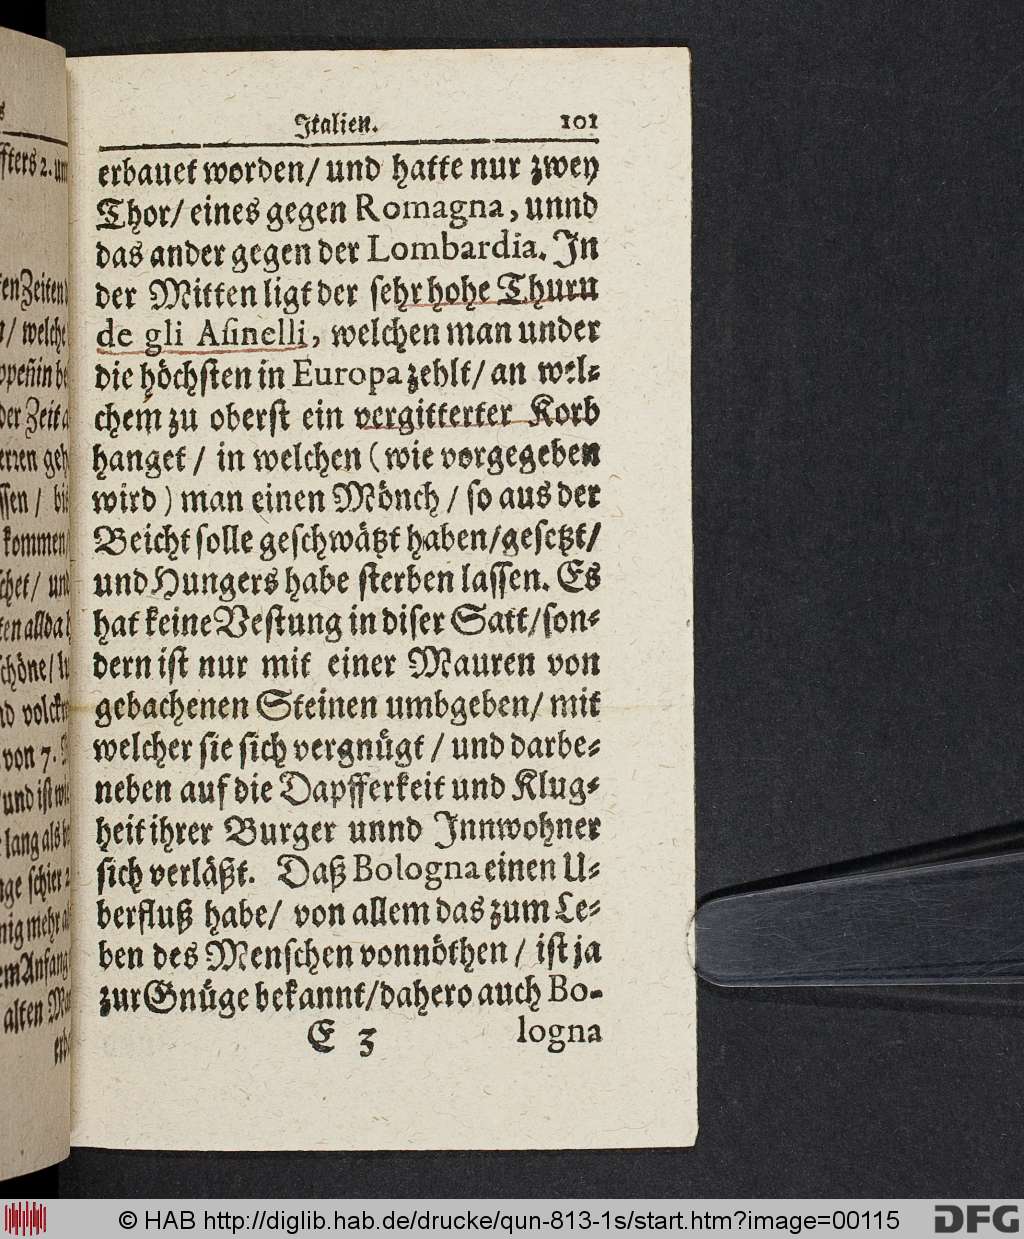 Italien. 101
erbauet worden/ und hatte nur zwey
Thor/ eines gegen Romagna, unnd
das ander gegen der Lombardia. In
der Mitten ligt der sehr hohe Thurn
de gli Asinelli, welchen man under
die höchsten in Europa zehlt/ an wel-
chem zu oberst ein vergitterter Korb
hanget / in welchen (wie vorgegeben
wird) man einen Mönch / so aus der
Beicht solle geschwätzt haben/gesetzt/
und Hungers habe sterben lassen. Es
hat keine Vestung in diser Satt/son-
dern ist nur mit einer Mauren von
gebachenen Steinen umbgeben/ mit
welcher sie sich vergnügt / und darbe-
neben auf die Dapfferkeit und Klug-
heit ihrer Burger unnd Innwohner
sich verläßt. Daß Bologna einen U-
berfluß habe/ von allem das zum Le-
ben des Menschen vonnöthen / ist ja
zur Gnüge bekannt/dahero auch Bo-
E 3 logna
ffters 2. um
ten Zeiten
/ welche
der Zeit a
ssen / bi
kommen
schet/ und
ten allda
schöne/ lu
von 7.
und ist
lang als
nge schier 2
nig mehr
em Anfang
alten
© HAB http://diglib.hab.de/drucke/qun-813-1s/start.htm?image=00115
DFG